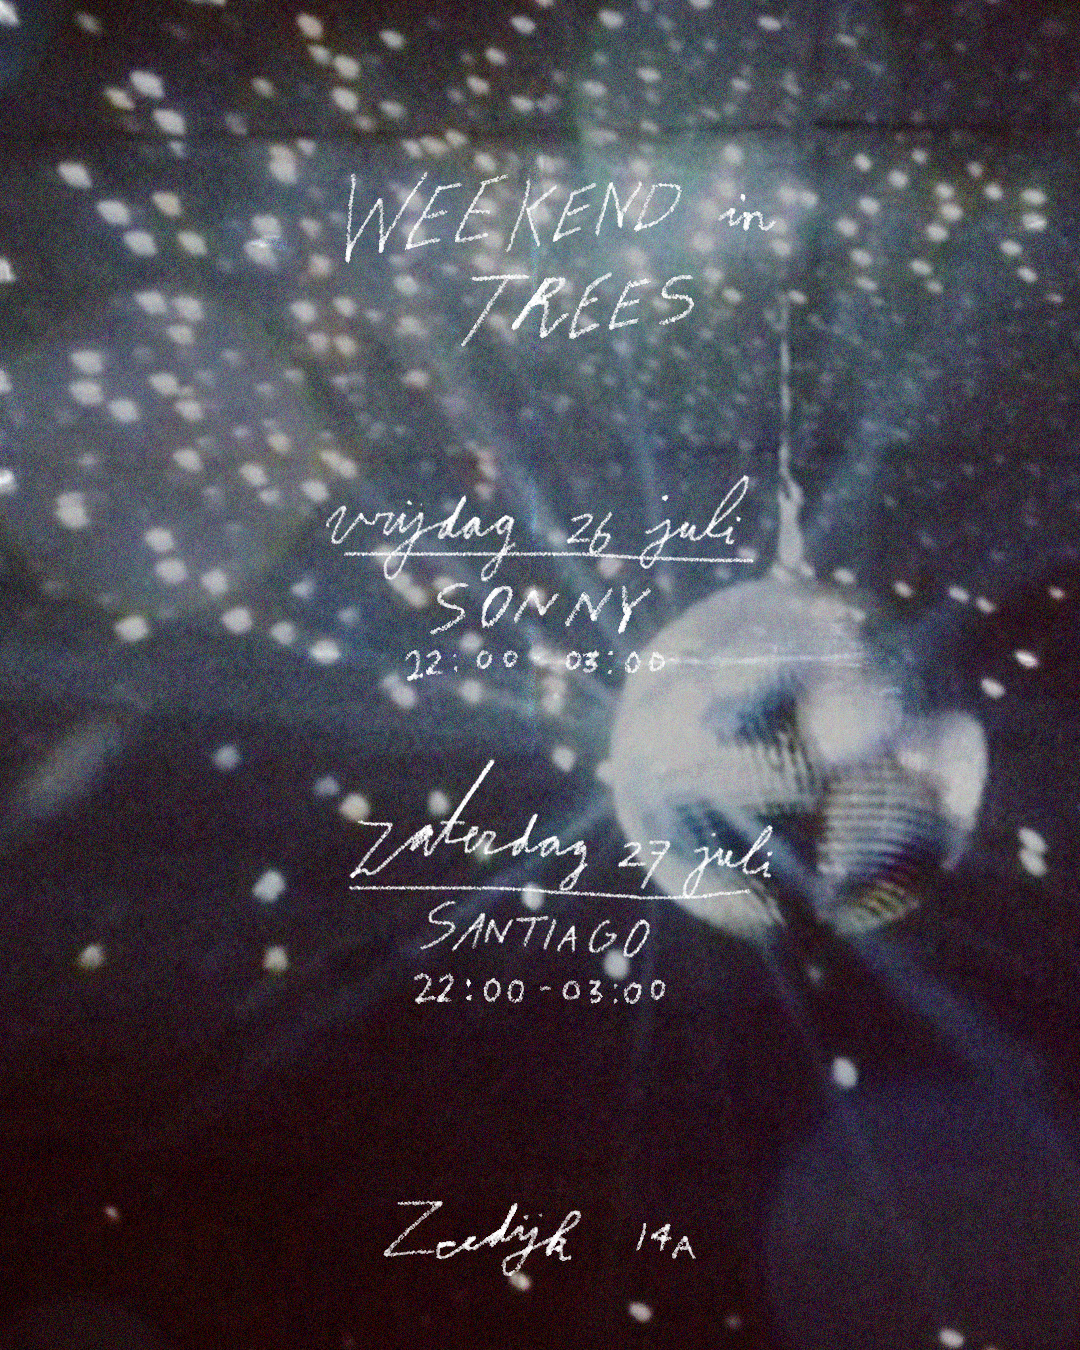 WEEKEND in
TREES
vrijdag 26 juli
SONNY
22:00 - 03:00
Zaterdag 27 juli
SANTIAGO
22:00 - 03:00
Zeedijk 14A